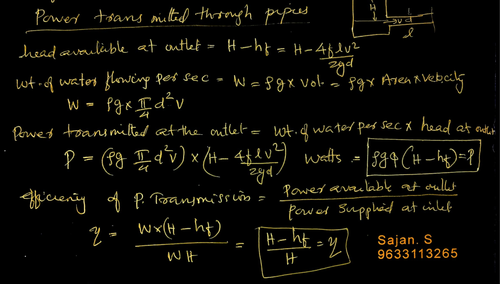 Power transmitted through pipes
H
v d
l
head available at outlet = H - hf = H - 4flv²/2gd
Wt. of water flowing per sec = W = ρg x Vol = ρg x Area x Velocity
W = ρg x π/4 d² v
Power transmitted at the outlet = Wt. of water per sec x head at outlet
P = (ρg π/4 d² v) x (H - 4flv²/2gd) watts = ρgQ (H - hf) = P
efficiency of P. Transmission = Power available at outlet / Power supplied at inlet
η = W x (H - hf) / WH = H - hf / H = η
Sajan. S
9633113265